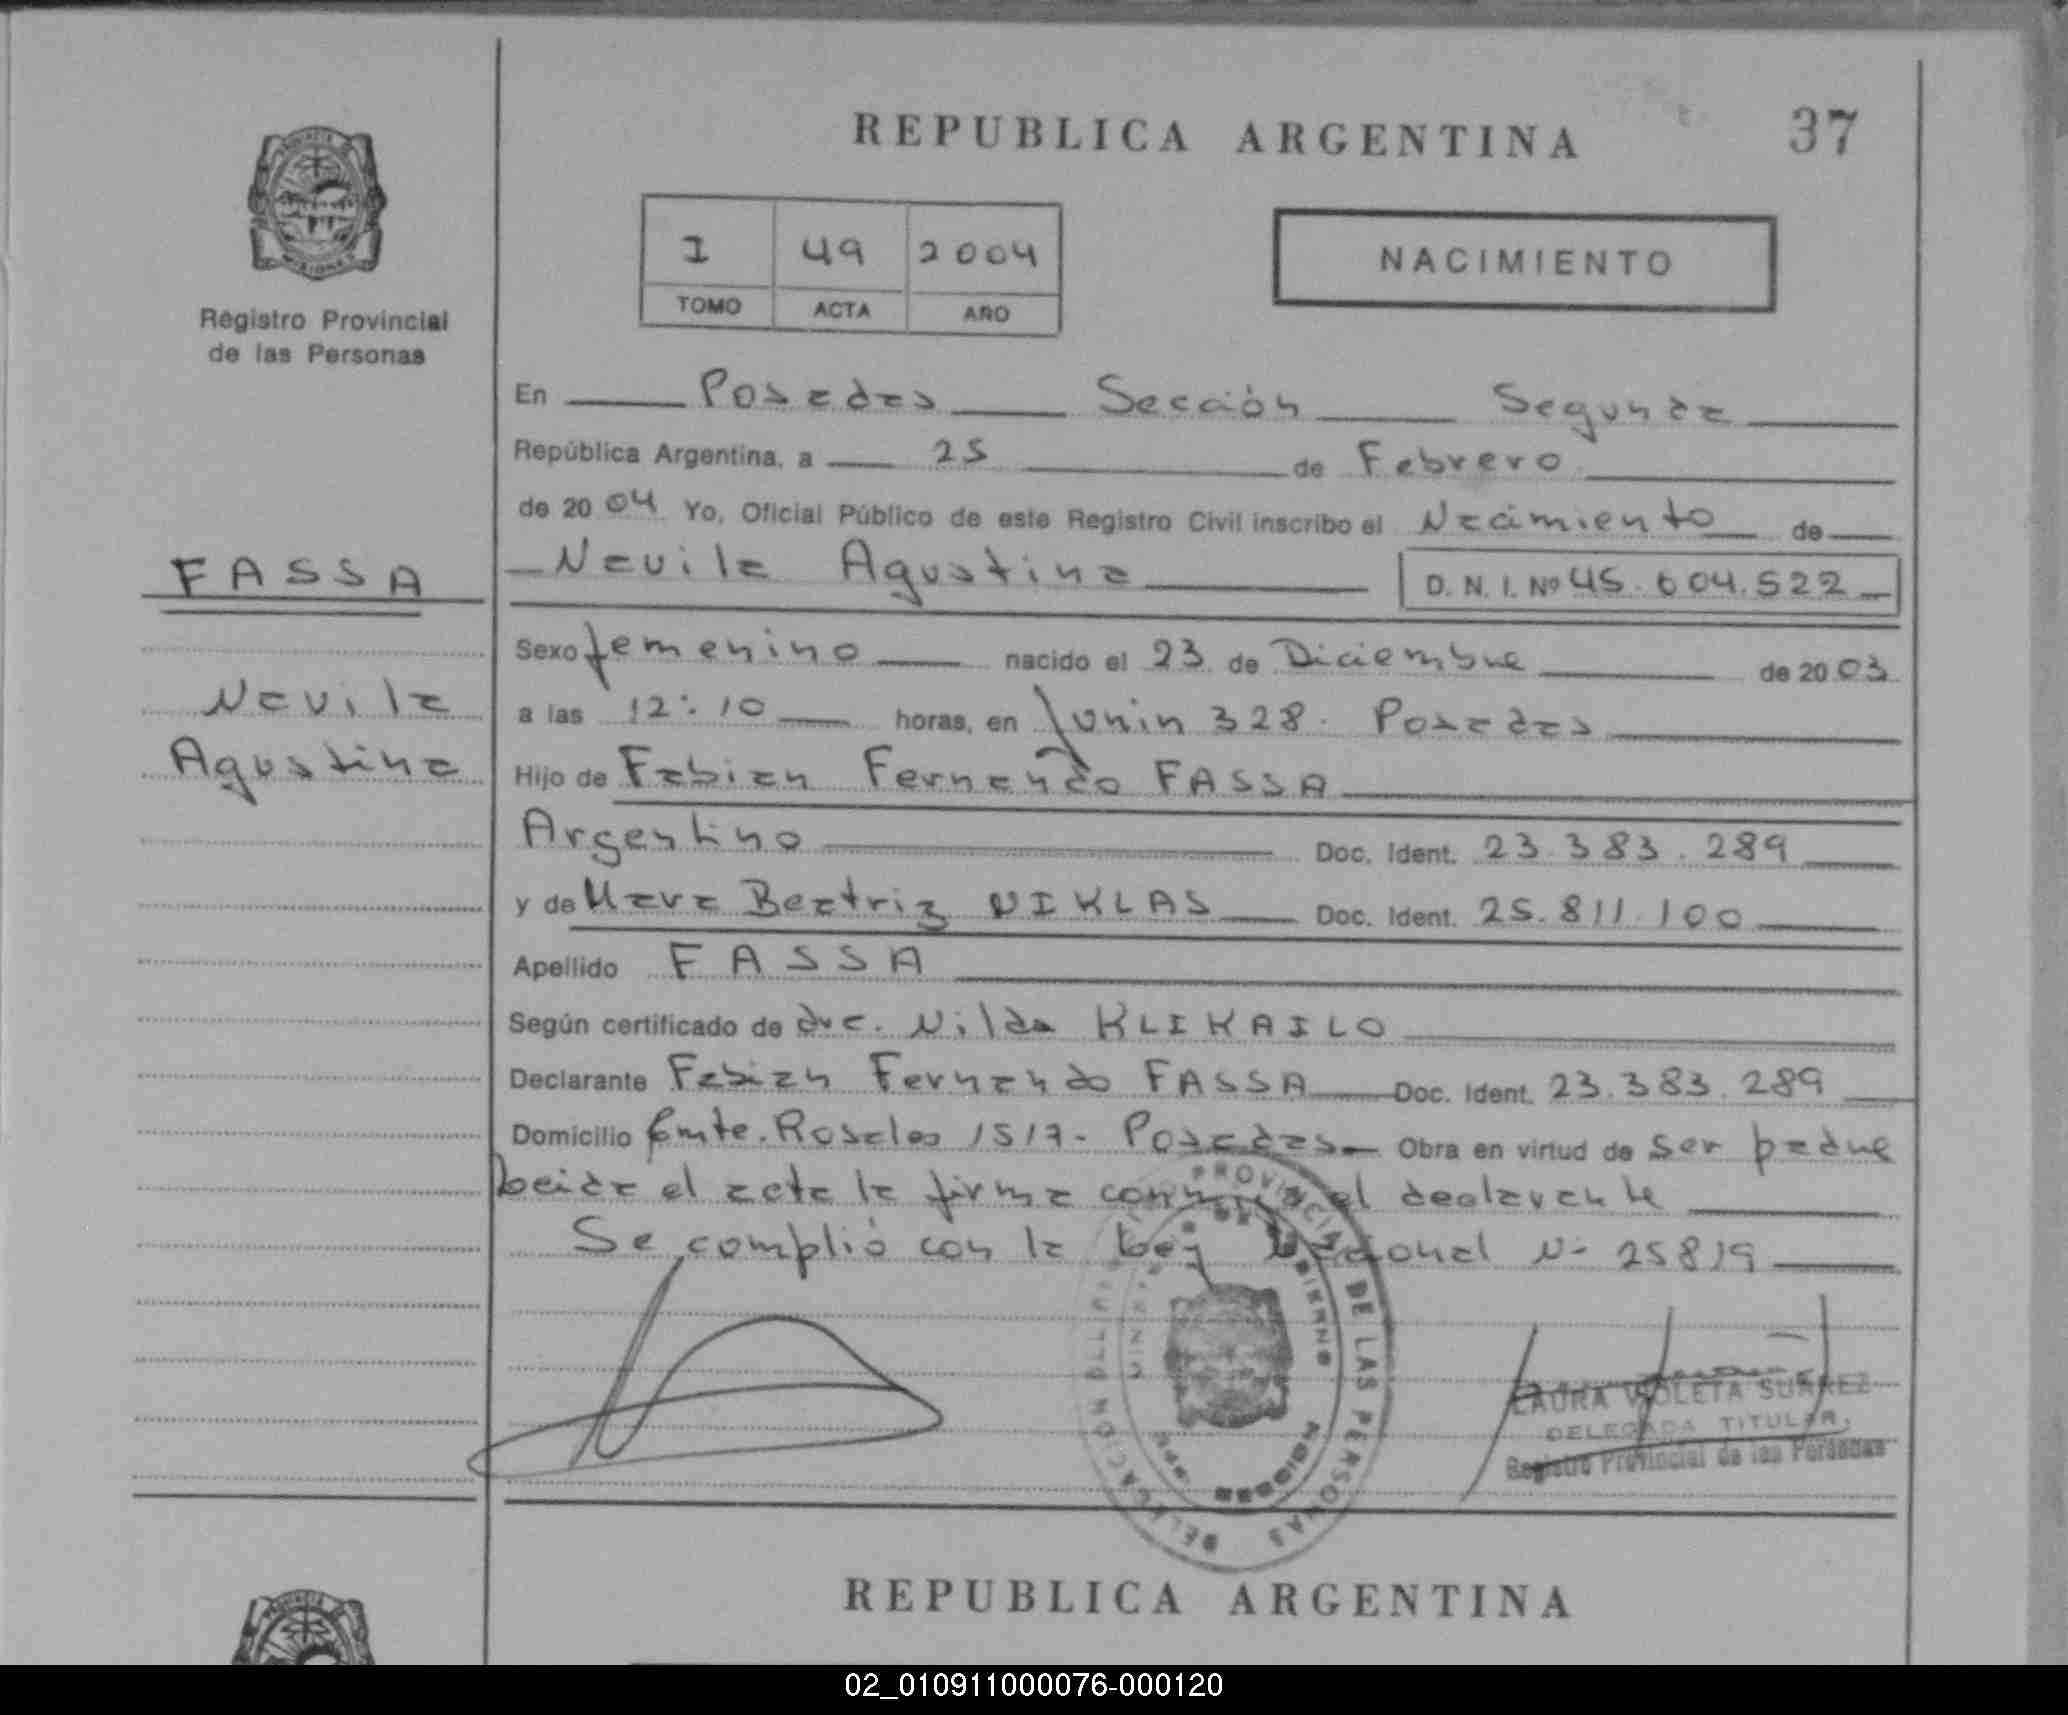 REPUBLICA ARGENTINA
37
PROVINCIA DE
MISIONES
Registro Provincial
de las Personas
I 49 2004
TOMO ACTA AÑO
NACIMIENTO
En Posadas Sección Segunda
República Argentina, a 25 de Febrero
de 2004 Yo, Oficial Público de este Registro Civil inscribo el Nacimiento de
Naville Agustina D. N. I. Nº 45.604.522
FASSA
Sexo femenino nacido el 23 de Diciembre de 2003
Agustina
a las 12:10 horas, en Junin 328. Posadas
Hijo de Fabian Fernando FASSA
Argentino Doc. Ident. 23.383.289
y de Mara Beatriz NIKLAS Doc. Ident. 25.811.100
Apellido FASSA
Según certificado de dra. Nilda KLIKAILO
Declarante Fabian Fernando FASSA Doc. Ident. 23.383.289
Domicilio 1517- Posadas Obra en virtud de ser padre
Leida el acta la firma el declarante
Se complió con la Ley Nacional Nº 25819
PROVINCIAL DE LAS PERSONAS
DELEGACION
MISIONES
LAURA VIOLETA SUAREZ
DELEGADA TITULAR
Registro Provincial de las Personas
REPUBLICA ARGENTINA
02_010911000076-000120